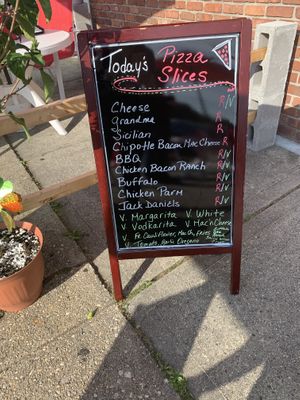 Today's Pizza Slices
Cheese R/V
grandma R
Sicilian R
Chipotle Bacon Mac Cheese R
BBQ R/V
Chicken Bacon Ranch R/V
Buffalo R/V
Chicken Parm R/V
Jack Daniels R/V
V. Margarita V. White
V. Vodkarita V. Mac N Cheese
V. Tomato, Garlic